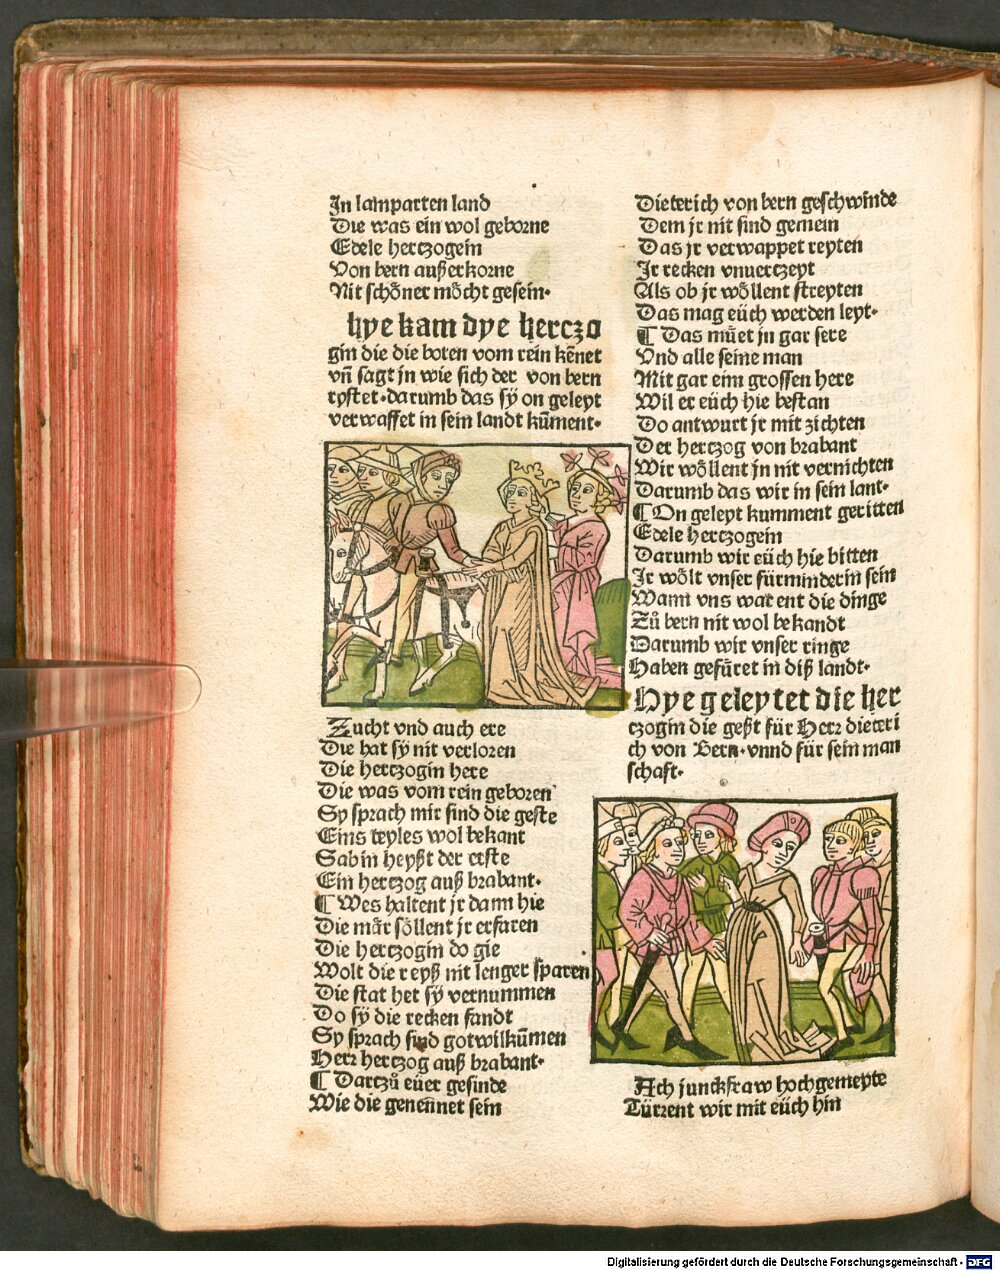 In lamparten land
Die was ein wol geborne
Edele hertzogein
Von bern außerkorne
Nit schöner möcht gesein·
hye kam dye herczo
gin die die boten vom rein kēnet
vñ sagt jn wie sich der von bern
rystet·darumb das sÿ on geleyt
verwaffet in sein landt kūment·
Zucht vnd auch ere
Die hat sÿ nit verloren
Die hertzogin here
Die was vom rein geboren
Sy sprach mir sind die geste
Eins teyles wol bekant
Sabin heyßt der erste
Ein hertzog auß brabant·
¶ Wes haltent jr dann hie
Die mär söllent jr erfaren
Die hertzogin do gie
Wolt die reyß nit lenger sparen
Die stat het sÿ vernummen
Do sÿ die recken fandt
Sy sprach sind gotwilkūmen
Herr hertzog auß brabant·
¶ Dartzů eüer gesinde
Wie die genennet sein
Dieterich von bern geschwinde
Dem jr nit sind gemein
Das jr verwappet reyten
Ir recken vnuerczeyt
Als ob jr wöllent streyten
Das mag eüch werden leyt·
¶ Das müet jn gar sere
Vnd alle seine man
Mit gar eim grossen here
Wil er eüch hie bestan
Do antwurt jr mit zichten
Der hertzog von brabant
Wir wöllent jn nit vernichten
Darumb das wir in sein lant·
¶ On geleyt kumment geritten
Edele hertzogein
Darumb wir eüch hie bitten
Ir wölt vnser fürminderin sein
Wann vns warent die dinge
Zů bern nit wol bekandt
Darumb wir vnser ringe
Haben gefüret in diß landt·
Hye geleytet die her
tzogin die geßt für Herr dieteri
ch von Bern·vnnd für sein man
schaft·
Ach junckfraw hochgemeyte
Türrent wir mit eüch hin
Digitalisierung gefördert durch die Deutsche Forschungsgemeinschaft - DFG